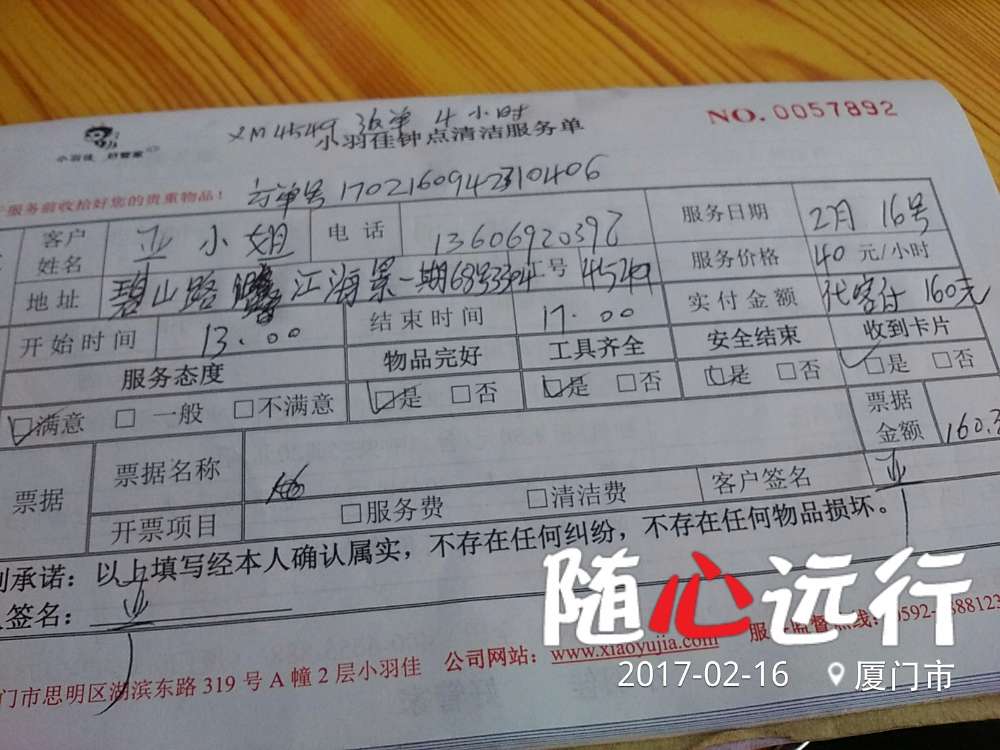 XM4549 派单 4小时
NO.0057892
小羽佳 好管家
小羽佳钟点清洁服务单
服务前收拾好您的贵重物品！
订单号 1702160942310406
客户姓名 亚小姐 电话 13606920392 服务日期 2月16号
地址 碧山路鹭江海景一期 工号 4549 服务价格 40元/小时
开始时间 13.00 结束时间 17.00 实付金额 代客付 160元
服务态度 物品完好 工具齐全 安全结束 收到卡片
☑满意 □一般 □不满意 ☑是 □否 ☑是 □否 ☑是 □否 ☑是 □否
票据 票据名称 票据金额 160.
开票项目 □服务费 □清洁费 客户签名 亚
承诺：以上填写经本人确认属实，不存在任何纠纷，不存在任何物品损坏。
签名：亚
随心远行
门市思明区湖滨东路 319 号 A 幢 2 层小羽佳 公司网站：www.xiaoyujia.com 服务监督热线：0592-
2017-02-16 厦门市